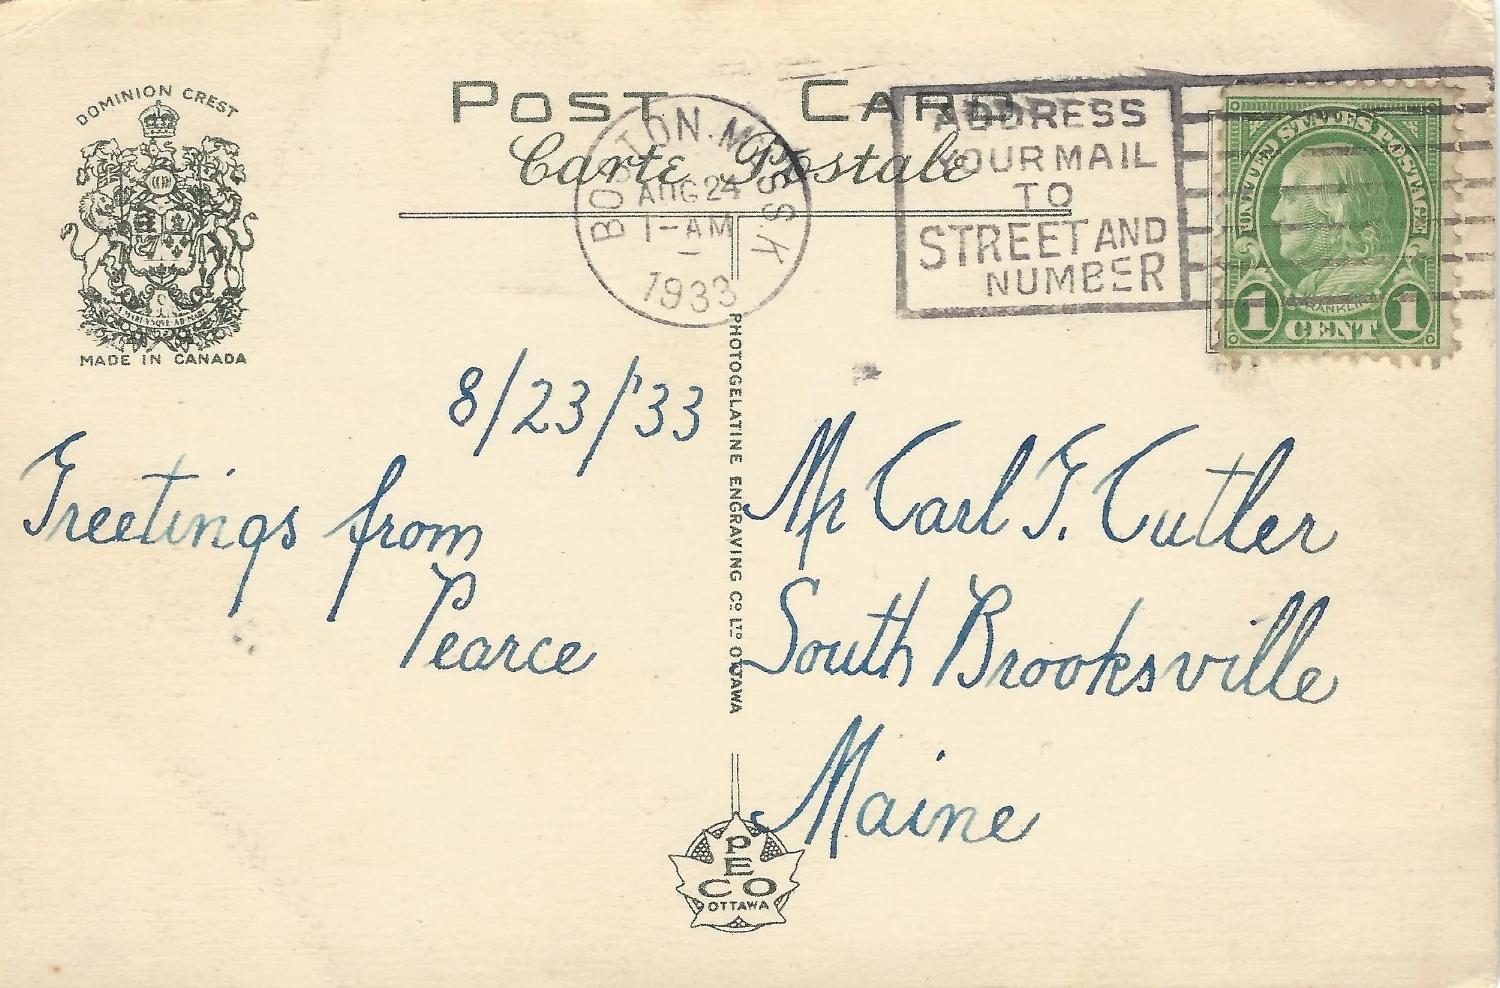 DOMINION CREST
MADE IN CANADA
POST CARD
Carte Postale
BOSTON. MASS. K
AUG 24
1-AM
1933
ADDRESS
YOUR MAIL
TO
STREET AND
NUMBER
UNITED STATES POSTAGE
FRANKLIN
1 CENT 1
8/23/'33
Greetings from
Pearce
PHOTOGELATINE ENGRAVING CO LTD OTTAWA
Mr Carl F. Cutler
South Brooksville
Maine
PECO
OTTAWA